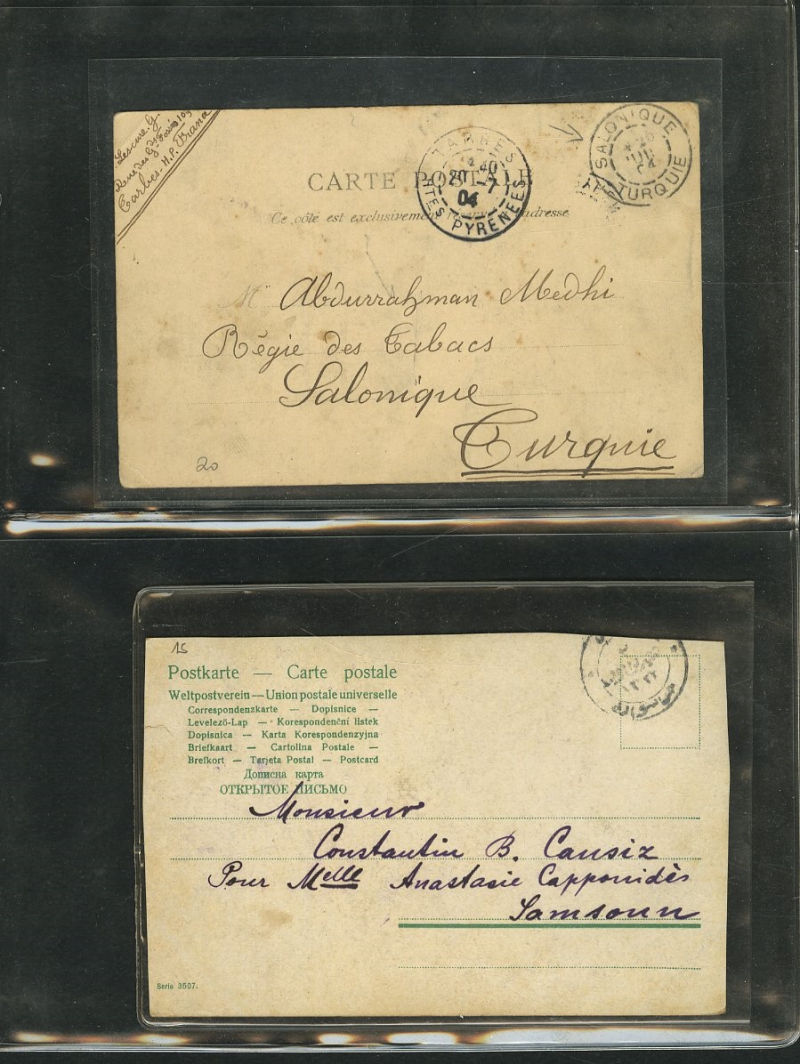 Lescure. G.
Tarbes. H.P. France
TARBES
20 40
-7
04
HTES PYRENEES
SALONIQUE
TURQUIE
CARTE POSTALE
Ce côté est exclusivement adresse
Mr Abdurrahman Medhi
Régie des Tabacs
Salonique
Turquie
20
15
Postkarte — Carte postale
Weltpostverein — Union postale universelle
Correspondenzkarte — Dopisnice —
Levelező-Lap — Korespondenční listek
Dopisnica — Karta Korespondenzyjna
Briefkaart — Cartolina Postale —
Brefkort — Tarjeta Postal — Postcard
Дописна карта
ОТКРЫТОЕ ПИСЬМО
Monsieur
Constantin B. Cansiz
Pour Melle Anastasie Capponidès
Samsoun
Serie 3507.